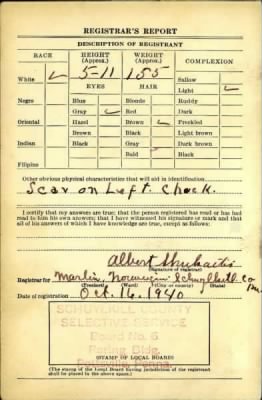 REGISTRAR'S REPORT
DESCRIPTION OF REGISTRANT
RACE HEIGHT (Approx.) WEIGHT (Approx.) COMPLEXION
White ✓ 5-11 155 Sallow
EYES HAIR Light ✓
Negro Blue Blonde Ruddy
Gray ✓ Red Dark
Oriental Hazel Brown ✓ Freckled
Brown Black Light brown
Indian Black Gray Dark brown
Bald Black
Filipino
Other obvious physical characteristics that will aid in identification
Scar on Left Cheek.
I certify that my answers are true; that the person registered has read or has had read to him his own answers; that I have witnessed his signature or mark and that all of his answers of which I have knowledge are true, except as follows:
Albert
(Signature of registrar)
Registrar for Marlin Norwegian Schuylkill Co
(Precinct) (Ward) (City or county) (State)
Date of registration Oct. 16, 1940
SCHUYLKILL COUNTY
SELECTIVE SERVICE
Board No. 6
Bldg.
Pottsville, Penna.
(STAMP OF LOCAL BOARD)
(The stamp of the Local Board having jurisdiction of the registrant shall be placed in the above space.)